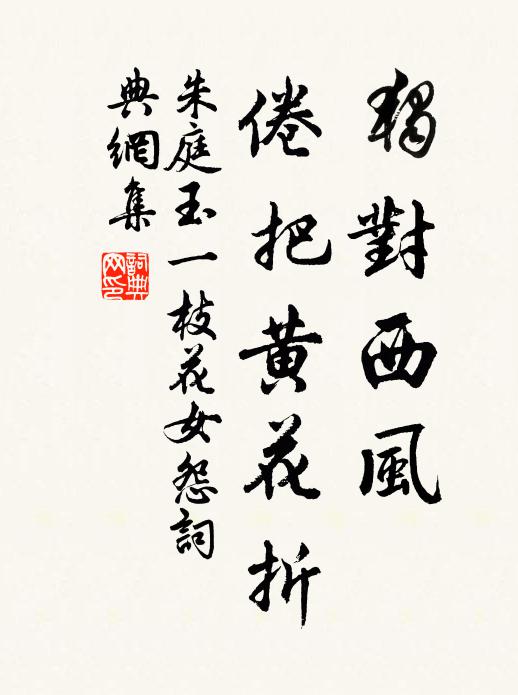 獨對西風
倦把黃花折
朱庭玉一枝花女怨詞
典網集
詞典网印